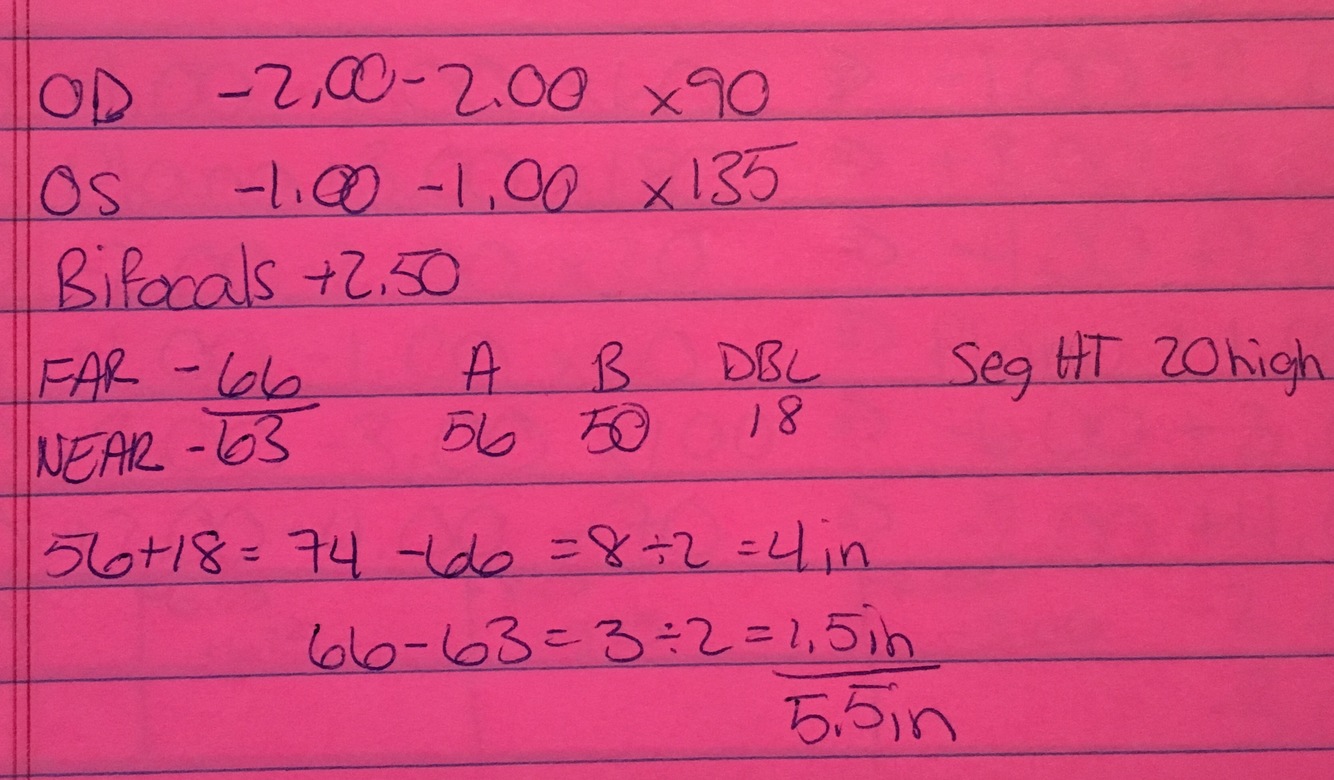 OD -2.00-2.00 x90
OS -1.00 -1.00 x135
Bifocals +2.50
FAR - 66 A B DBL Seg HT 20 high
NEAR - 63 56 50 18
56+18= 74 -66 =8÷2 =4in
66-63=3÷2=1.5in
5.5in